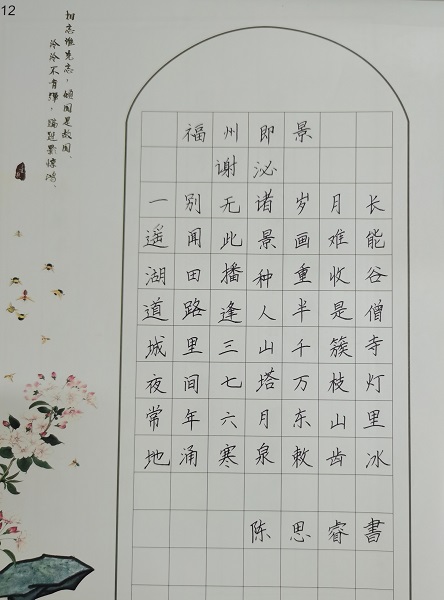 12
相忘谁先忘，倾国是故国。
泠泠不肯弹，蹁跹影惊鸿。
福州即景
谢泌
一别无诸岁月长
遥闻此景画难能
湖田播种重收谷
道路逢人半是僧
城里三山千簇寺
夜间七塔万枝灯
常年六月东山里
地涌寒泉敕齿冰
陈思睿書